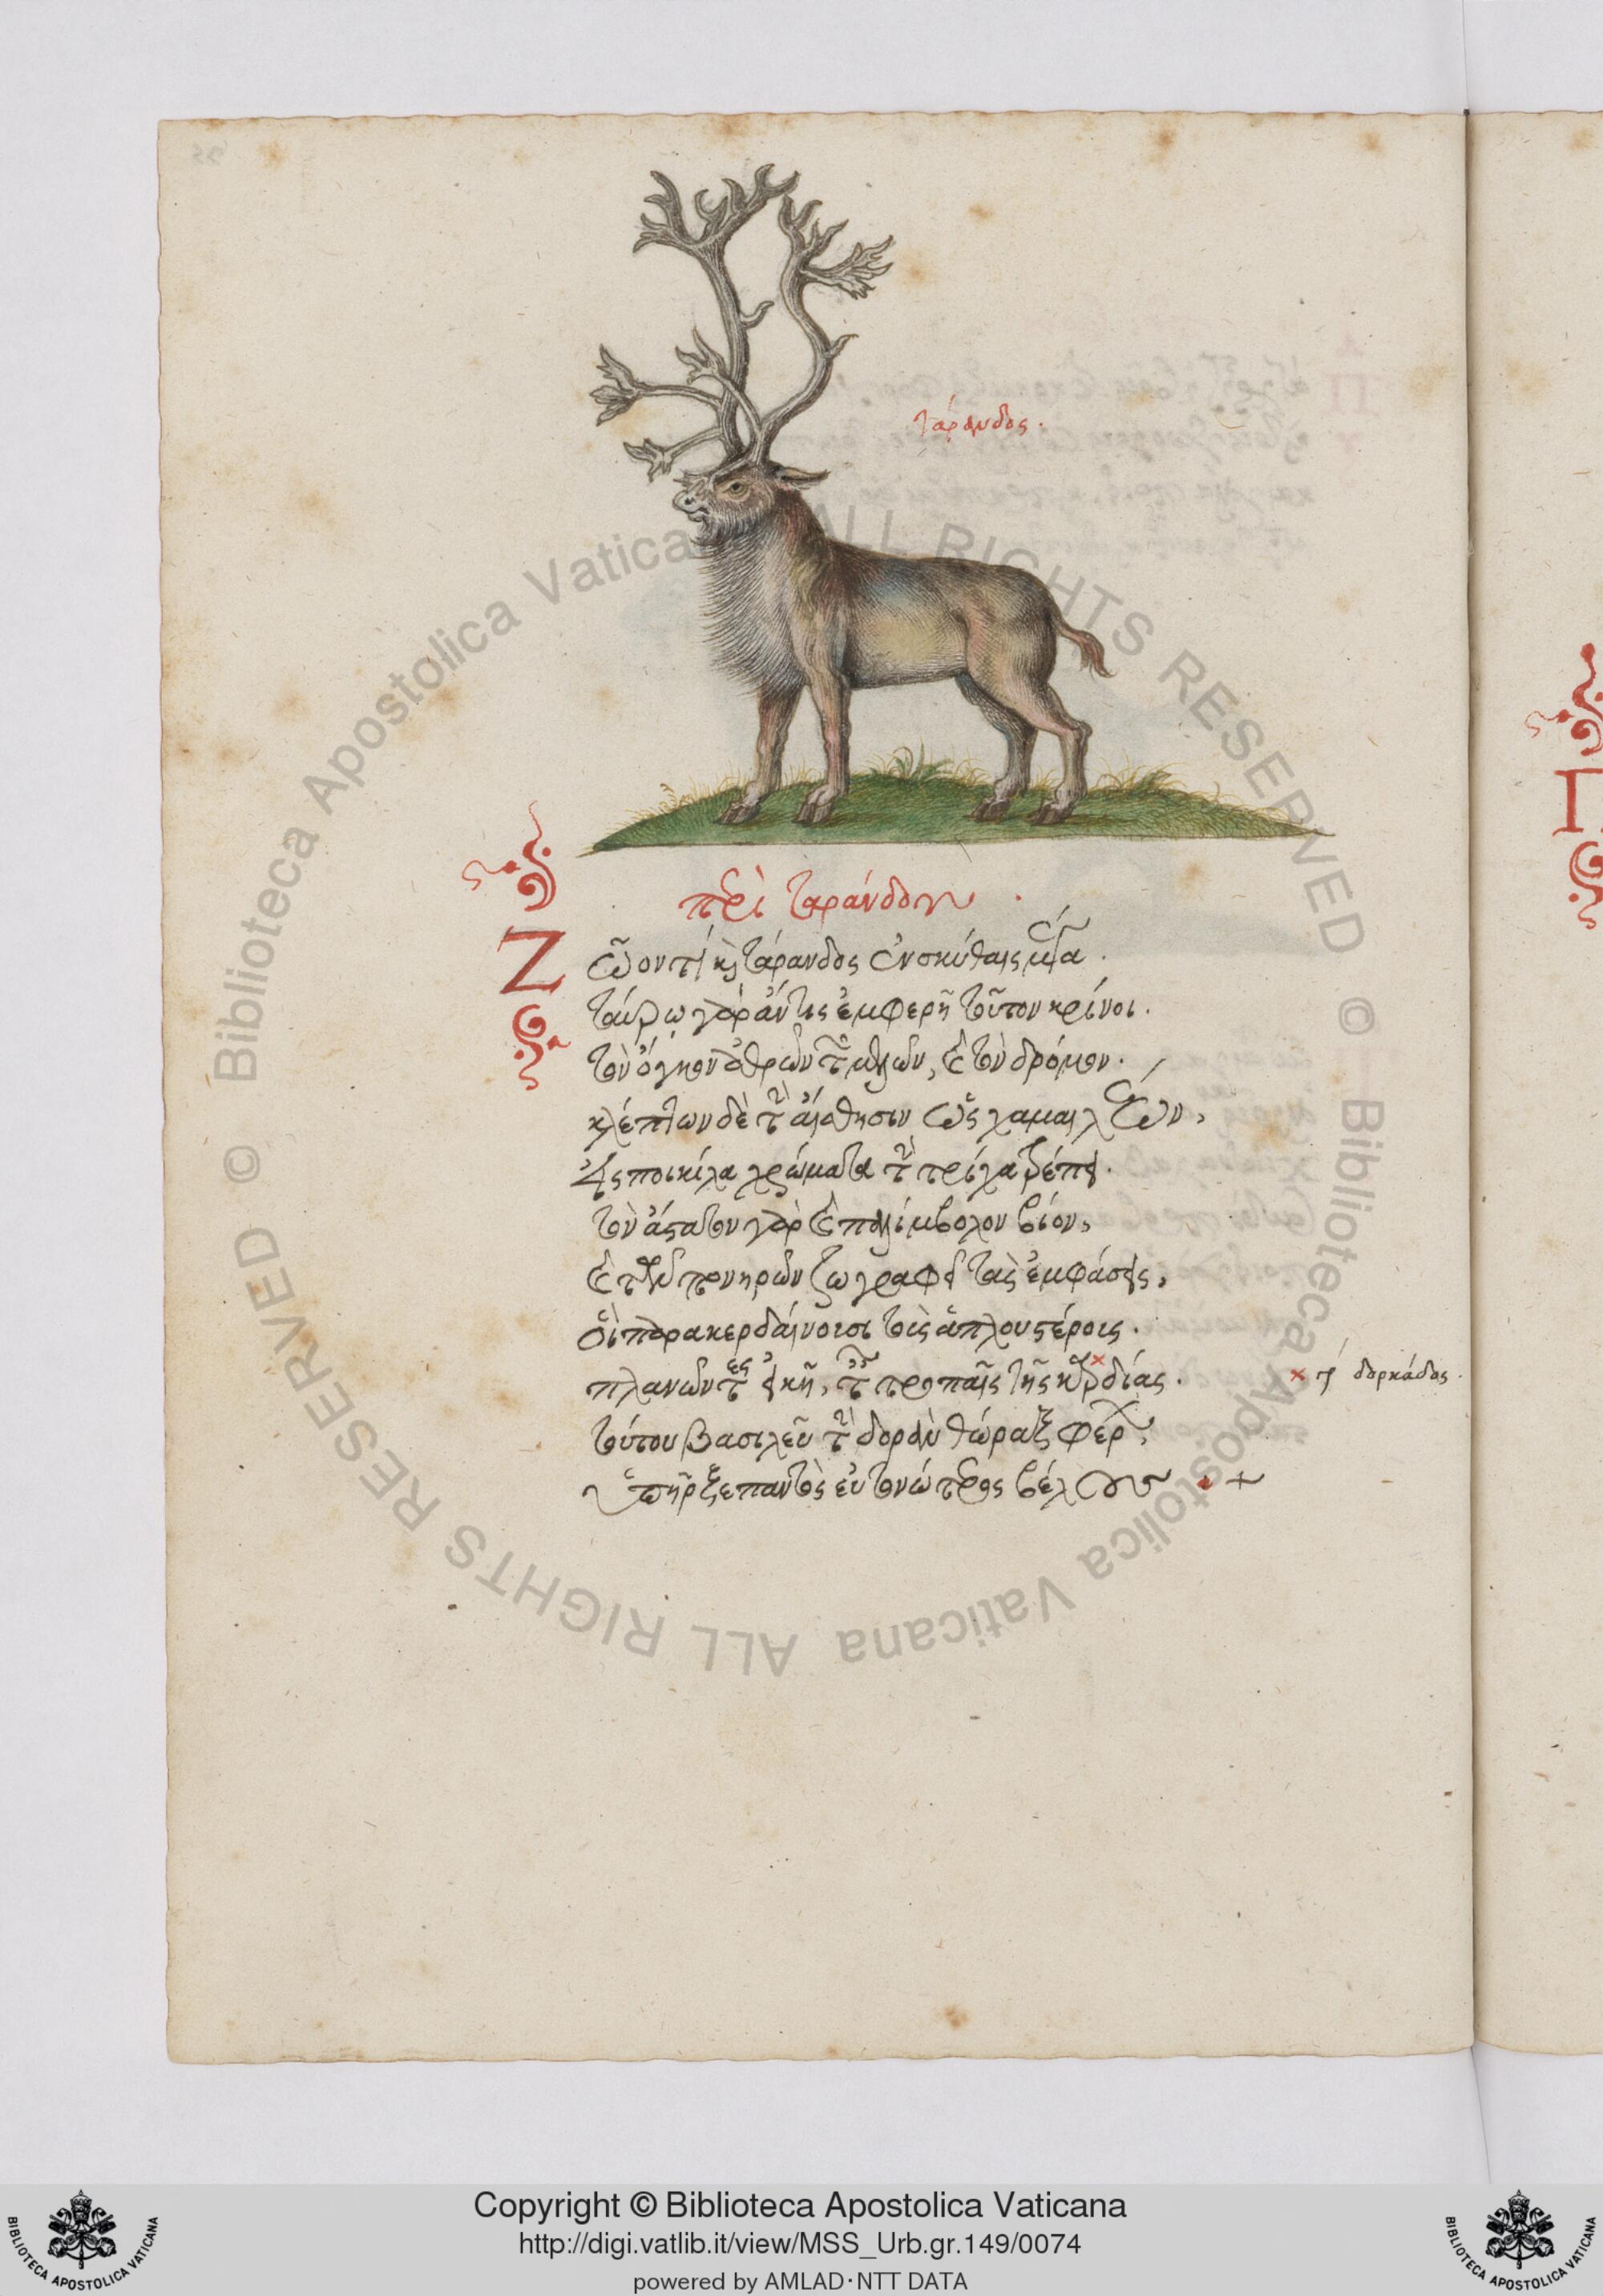 τάρανδος.
περὶ ταράνδου.
Ζῶον τί καὶ τάρανδος ἐν σκύθαις μέγα.
ταύρῳ γὰρ ἄν τις ἐμφερῆ τοῦτον κρίνοι.
τὸν ὄγκον ἀθρῶν τῶν μελῶν, καὶ τὸν δρόμον.
κλέπτων δὲ τὴν αἴσθησιν ὡς χαμαιλέων,
εἰς ποικίλα χρώματα τὴν τρίχα τρέπει.
τὸν ἄστατον γὰρ καὶ παλίμβολον βίον,
καὶ τῶν πονηρῶν ζωγραφεῖ τὰς ἐμφάσεις,
οἳ παρακερδαίνουσι τοὺς ἁπλουστέροις.
πλανῶντες εἰκῆ, ταῖς τροπαῖς τῆς καρδίας.
× δορκάδος.
τούτου βασιλεῦ τὴν δορὰν θώραξ φέρων,
ὑπῆρξε παντὸς εὐτονώτερος βέλους +
© Biblioteca Apostolica Vaticana ALL RIGHTS RESERVED © Biblioteca Apostolica Vaticana ALL RIGHTS RESERVED
Copyright © Biblioteca Apostolica Vaticana
http://digi.vatlib.it/view/MSS_Urb.gr.149/0074
powered by AMLAD·NTT DATA
BIBLIOTECA APOSTOLICA VATICANA
BIBLIOTECA APOSTOLICA VATICANA